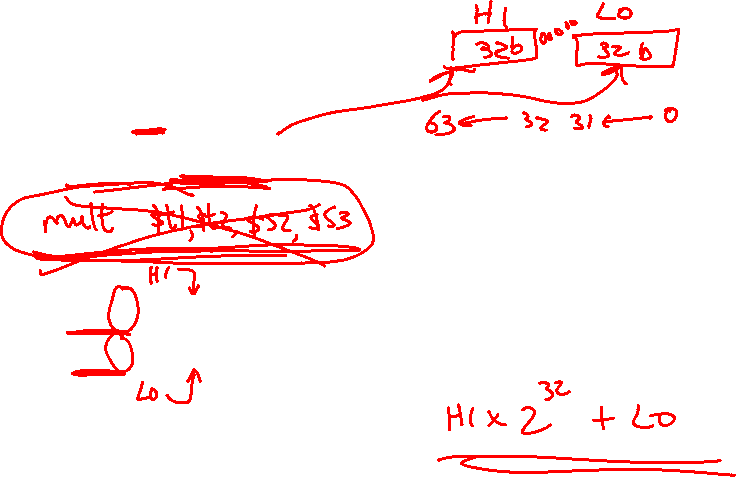 HI LO
32b 32b
63 ← 32 31 ← 0
mult $t1, $t2, $s2, $s3
HI
LO
HI x 2^32 + LO